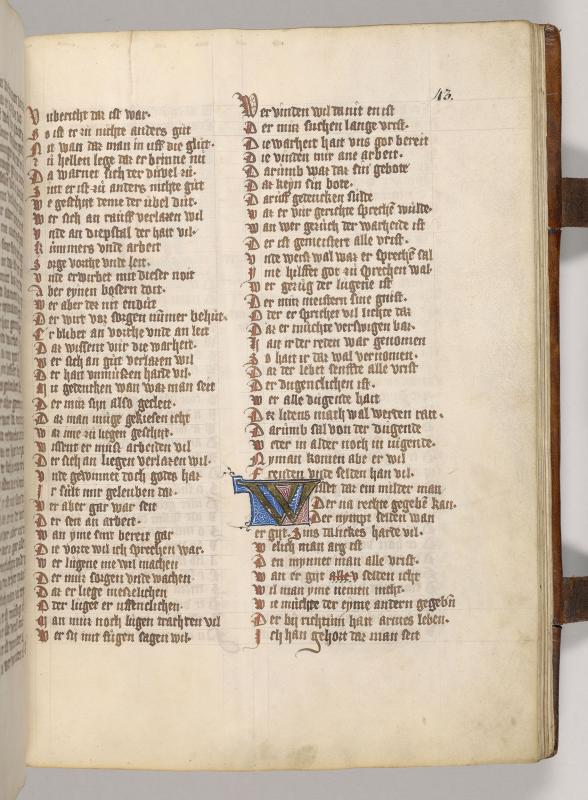 43.
V ubericht daz ist war.
S o ist er zu nichte anders gut
N it wan daz man in uff die glut.
Z u hellen lege daz er brinne mit
D a warner sich der duvel zu.
S int er ist zu anders nichte gut
W e geschiht deme der ubel dut.
W er sich an rauff verlazen wil
V nde an diepstal der hait vil.
K ummers vnde arbeit
S orge vorhte vnde leit.
V nde erwirbet mit dieser noit
A ber eynen bosern doit.
W er aber dez nit endut
D er wirt vor sorgen nummer behut.
E r blibet an vorchte vnde an leit
D az wissent vur die warheit.
W er sich an gut verlazen wil
D er hait vnmussen harde vil.
N u gedencken wan waz man seit
D er muz syn also gecleit.
D az man muge gekiesen icht
W az ime zu liegen geschiht.
W issent er muz arbeiden vil
D er sich an liegen verlazen wil.
V nde gewinnet doch godes haz
I r sult mir geleuben daz.
W er aber gar war seit
D er seit an arbeit.
W an yme sint bereit gar
D ie vorte wil ich sprechen war.
W er lugene me wil machen
D er muz sorgen vnde wachen
D az er liege meizelichen
D er luget er vssenclichen.
M an muz noch lugen trachten vil
W er sij mit fugen sagen wil.
W er vinden wil da nit en ist
D er muz suchen lange vrist.
D ie warheit hait vns got bereit
D ie vinden mir ane arbeit.
D arumb waz daz sin gebote
D az keyn sin bote.
D arff gedencken sude
W az er vur gerichte spreche wulde.
W an wer geruch der warheide ist
D er ist gemeistere alle vrist.
V nde weist wal waz er spreche sal
I me hilffet got zu sprechen wal.
W er gerug der lugene ist
D er min meistern sine gnist.
O der er sprichet vil lichte daz
D az er muchte verswigen baz.
I an ir der reden war genomen
S o hait ir daz wal vernomen.
D az der lebet senffte alle vrist
D er dugentlichen ist.
W er alle dugende hait
D es lidens mach wal werden rait.
D arumb sal von der dugende
W eder in alder noch in iugende.
N yman komen abe er wil
F reuden vnde selden han vil.
W isset daz ein milder man
Der na rechte gegeben kan.
Der nympt selden wan
er gijt. Zins dunckes harde vil.
W elich man arg ist
D en mynnet man alle vrist.
W an er gijt alle v selden icht
W il man yme nemen nicht.
W ie muchte der eyme andern gegeben
D er bij richtum hait armes leben.
I ch han gehort daz man seit